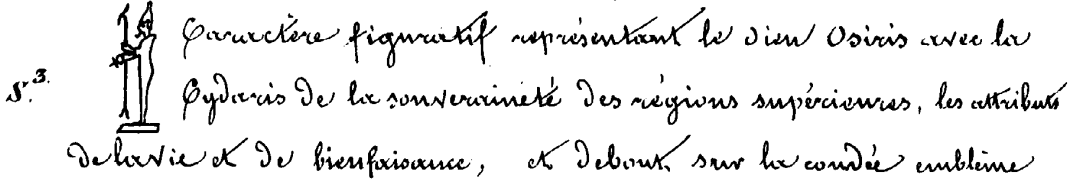 Caractère figuratif représentant le dieu Osiris avec la
S. 3. Cydaris de la souveraineté des régions supérieures, les attributs
de la vie et de bienfaisance, et debout sur la coudée emblème